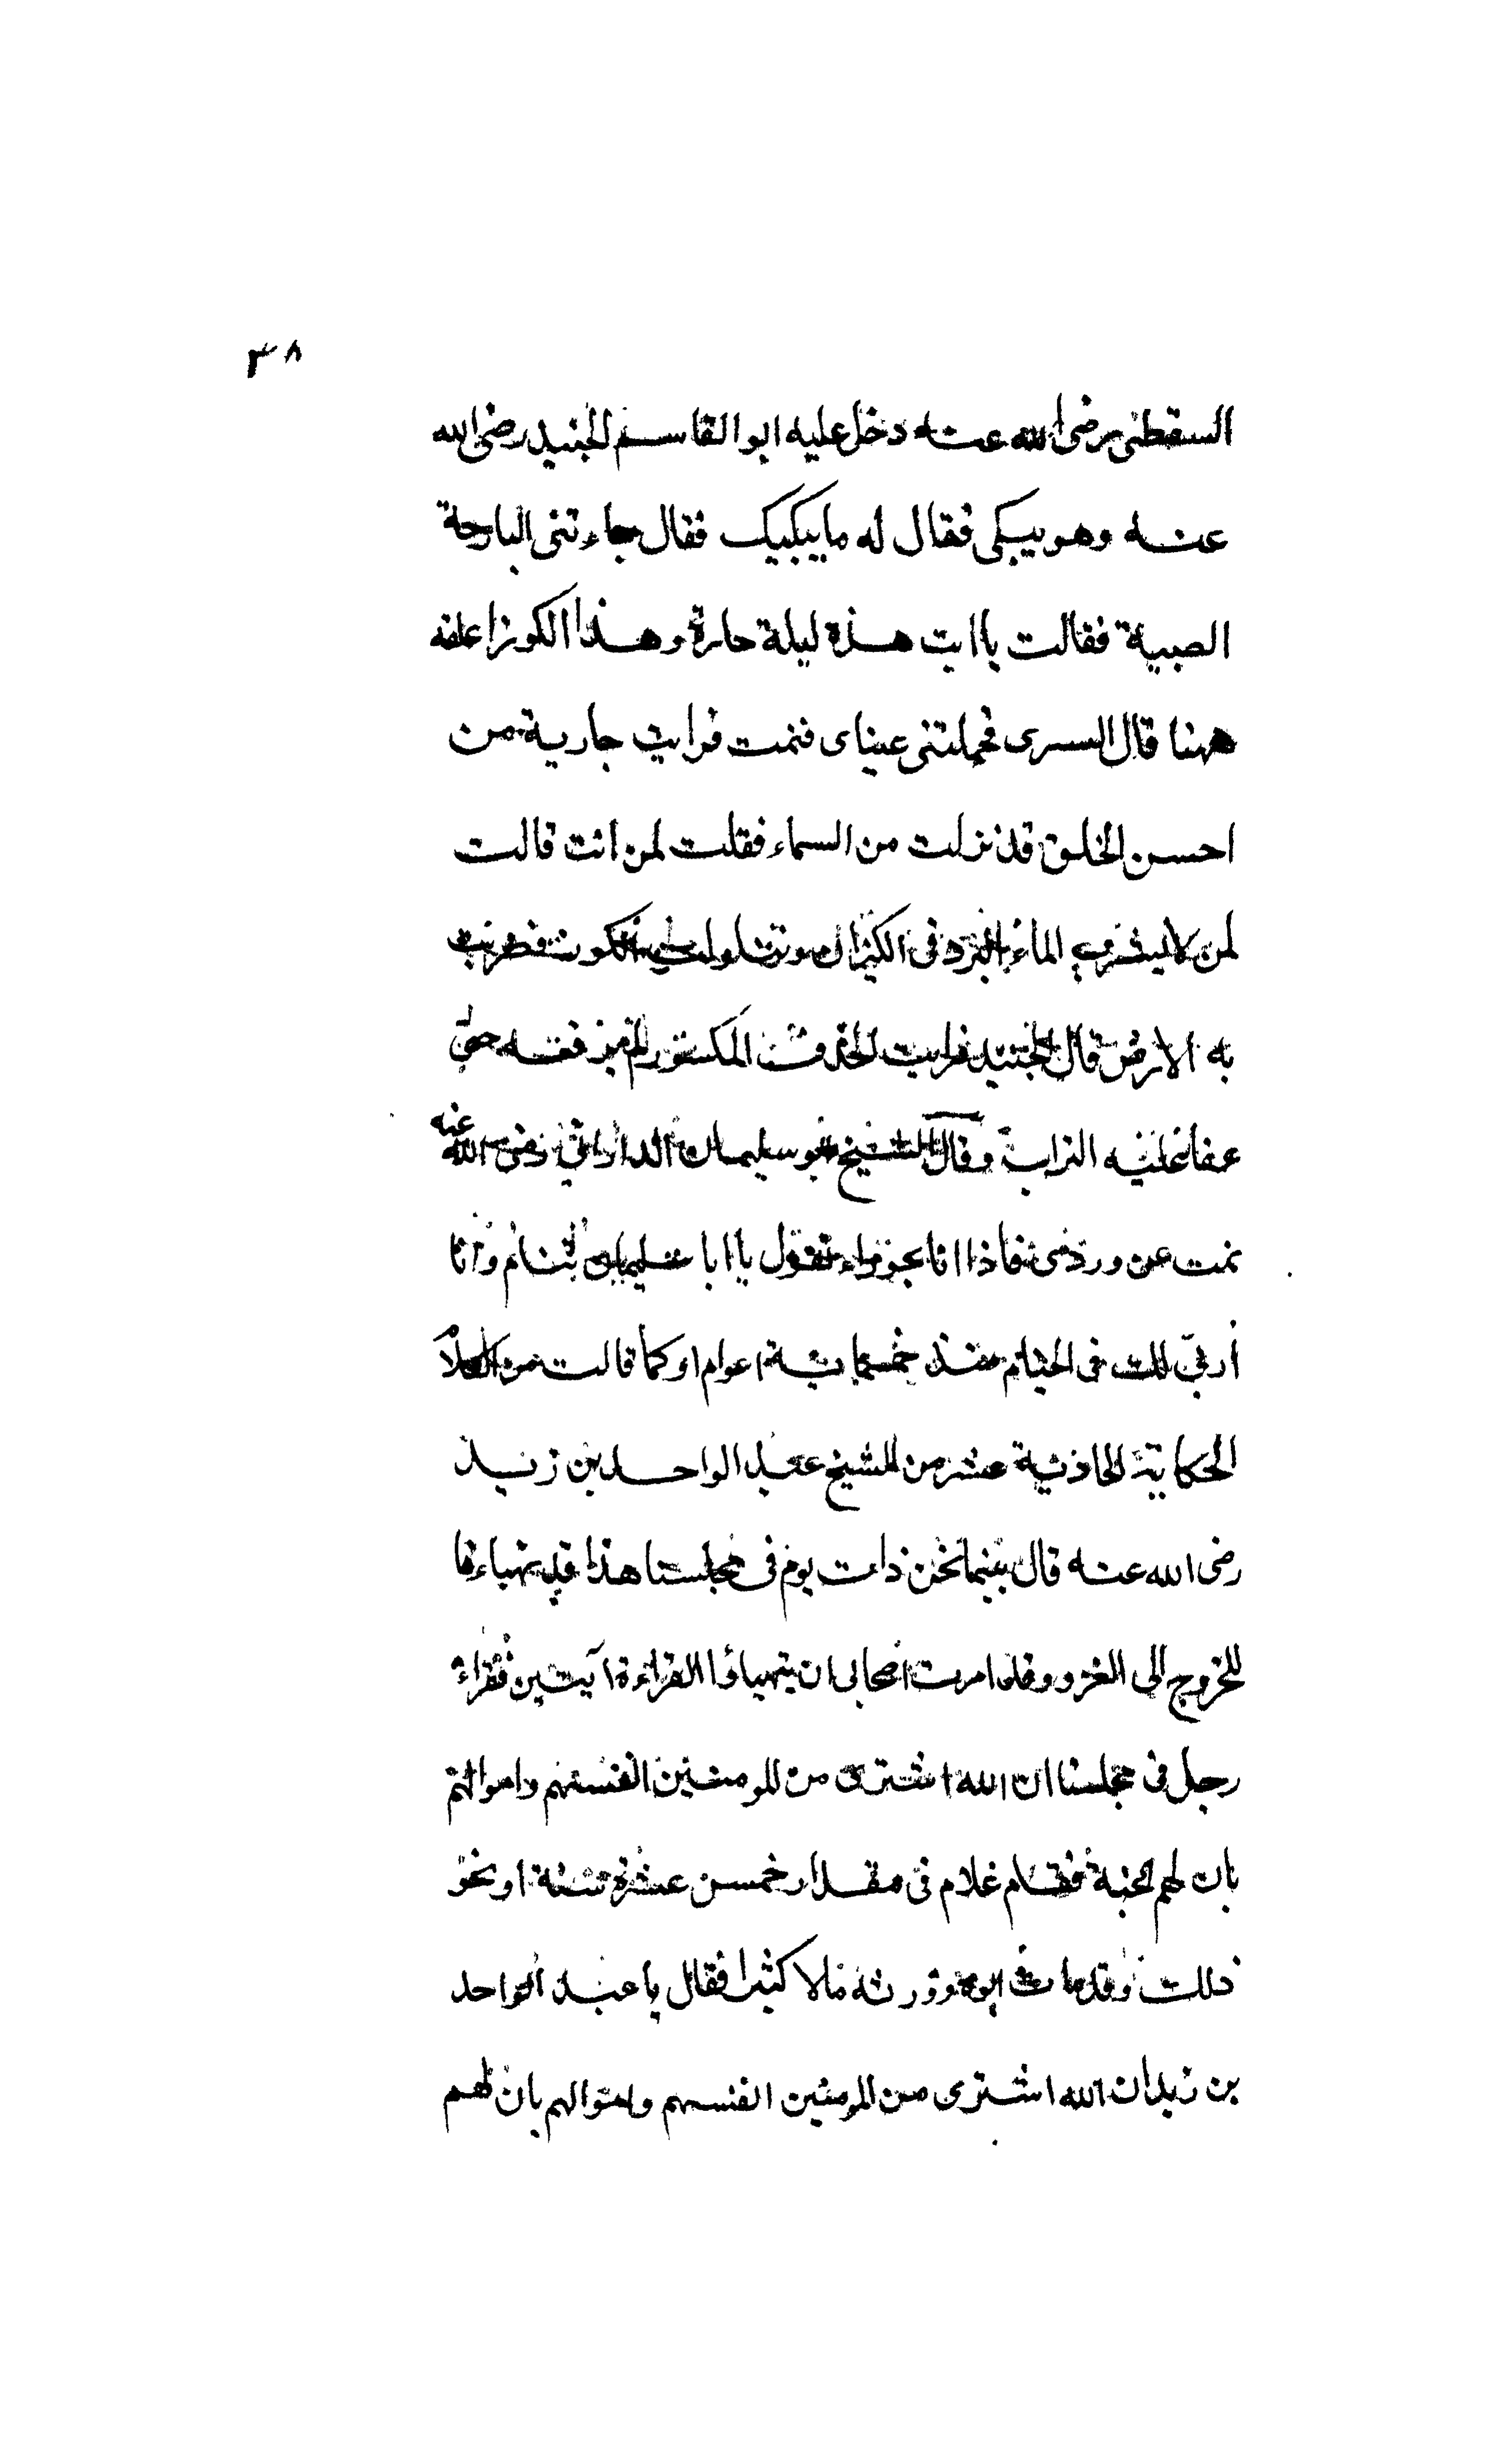 ٣٨
السقطى رضى الله عنه دخل عليه ابو القاسم الجنيد رضى الله
عنه وهو يبكى فقال له ما يبكيك فقال جاءتنى البارحة
الصبية فقالت يا ابت هذه ليلة حارة وهذا الكوز اعلقه
ههنا قال السرى فحملتنى عيناى فنمت فرايت جارية من
احسن الخلق قد نزلت من السماء فقلت لمن انت قالت
لمن لا يشرب الماء المبرد فى الكيزان وتناولت الكوز فضربت
به الارض قال الجنيد فرايت الخزف المكسور لم يرفعه حتى
عفا عليه التراب وقال الشيخ ابو سليمان الدارانى رضى الله عنه
نمت عن وردى فاذا انا بحوراء تقول يا ابا سليمان تنام وانا
أربى لك فى الخيام منذ خمسمائة اعوام او كما قالت من الكلام
الحكاية الحادية عشر من الشيخ عبد الواحد بن زيد
رضى الله عنه قال بينما نحن ذات يوم فى مجلسنا هذا قد تهياءنا
للخروج الى الغزو وقد امرت اصحابى ان يتهياؤا القراءة آيتين فقراء
رجل فى مجلسنا ان الله اشترى من المومنين انفسهم واموالهم
بان لهم الجنة فقام غلام فى مقدار خمس عشرة سنة او نحو
ذلك وقد مات ابوه وورثه مالا كثيرا فقال يا عبد الواحد
بن زيد ان الله اشترى من المومنين انفسهم واموالهم بان لهم